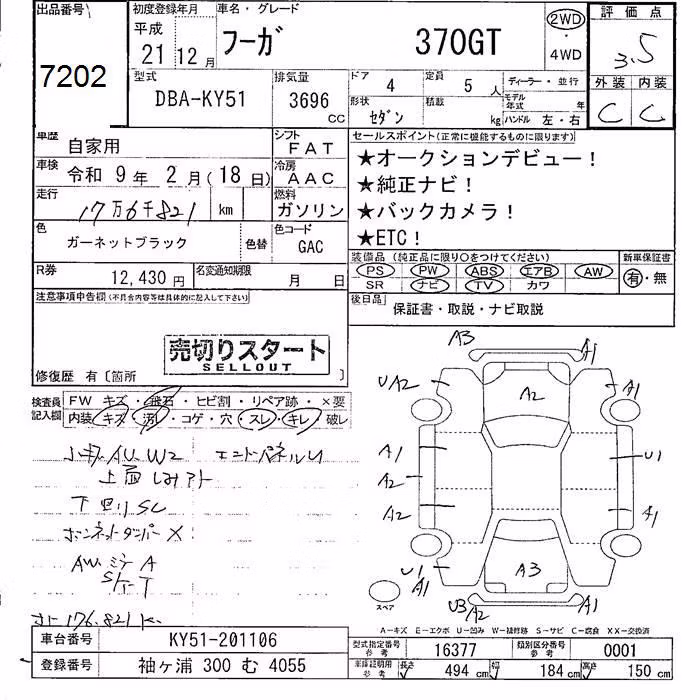 出品番号
7202
初度登録年月
平成
21 12 月
車名・グレード
フーガ 370GT
2WD
・
4WD
評価点
3.5
外装 内装
C C
型式
DBA-KY51
排気量
3696 CC
ドア 4
定員 5 人
ディーラー・並行
形状 セダン
積載 kg
モデル年式 年
ハンドル 左・右
車歴 自家用
シフト FAT
車検 令和 9 年 2 月 (18 日)
冷房 AAC
走行 17万6千821 km
燃料 ガソリン
色 ガーネットブラック 色替
色コード GAC
R券 12,430 円
名変通知期限 月 日
セールスポイント(正常に機能するものに限ります)
★オークションデビュー!
★純正ナビ!
★バックカメラ!
★ETC!
装備品 (純正品に限り○をつけてください)
新車保証書
PS PW ABS エアB AW
SR ナビ TV カワ
有・無
後日品
保証書・取説・ナビ取説
注意事項申告欄(不具合内容等は具体的に記入して下さい)
売切りスタート
SELLOUT
修復歴 有〔箇所 〕
検査員記入欄
FW キズ・飛石・ヒビ割・リペア跡・×要
内装・キズ・汚れ・コゲ・穴・スレ・キレ・破レ
AU W2 エンドパネルU
上面しみアト
下回りSC
ボンネットダンパーX
AW ミラーA
176.821K
A3
A1
UA2
A2
A1
A1
U1
A2
A2
A1
U1
A1
A3
U3
A2
A1
スペア
A-キズ E-エクボ U-凹み W-補修跡 S-サビ C-腐食 XX-交換済
車台番号 KY51-201106
登録番号 袖ヶ浦 300 む 4055
型式指定番号 参考 16377
類別区分番号 参考 0001
車庫証明用 参考 長さ 494 cm 幅 184 cm 高さ 150 cm